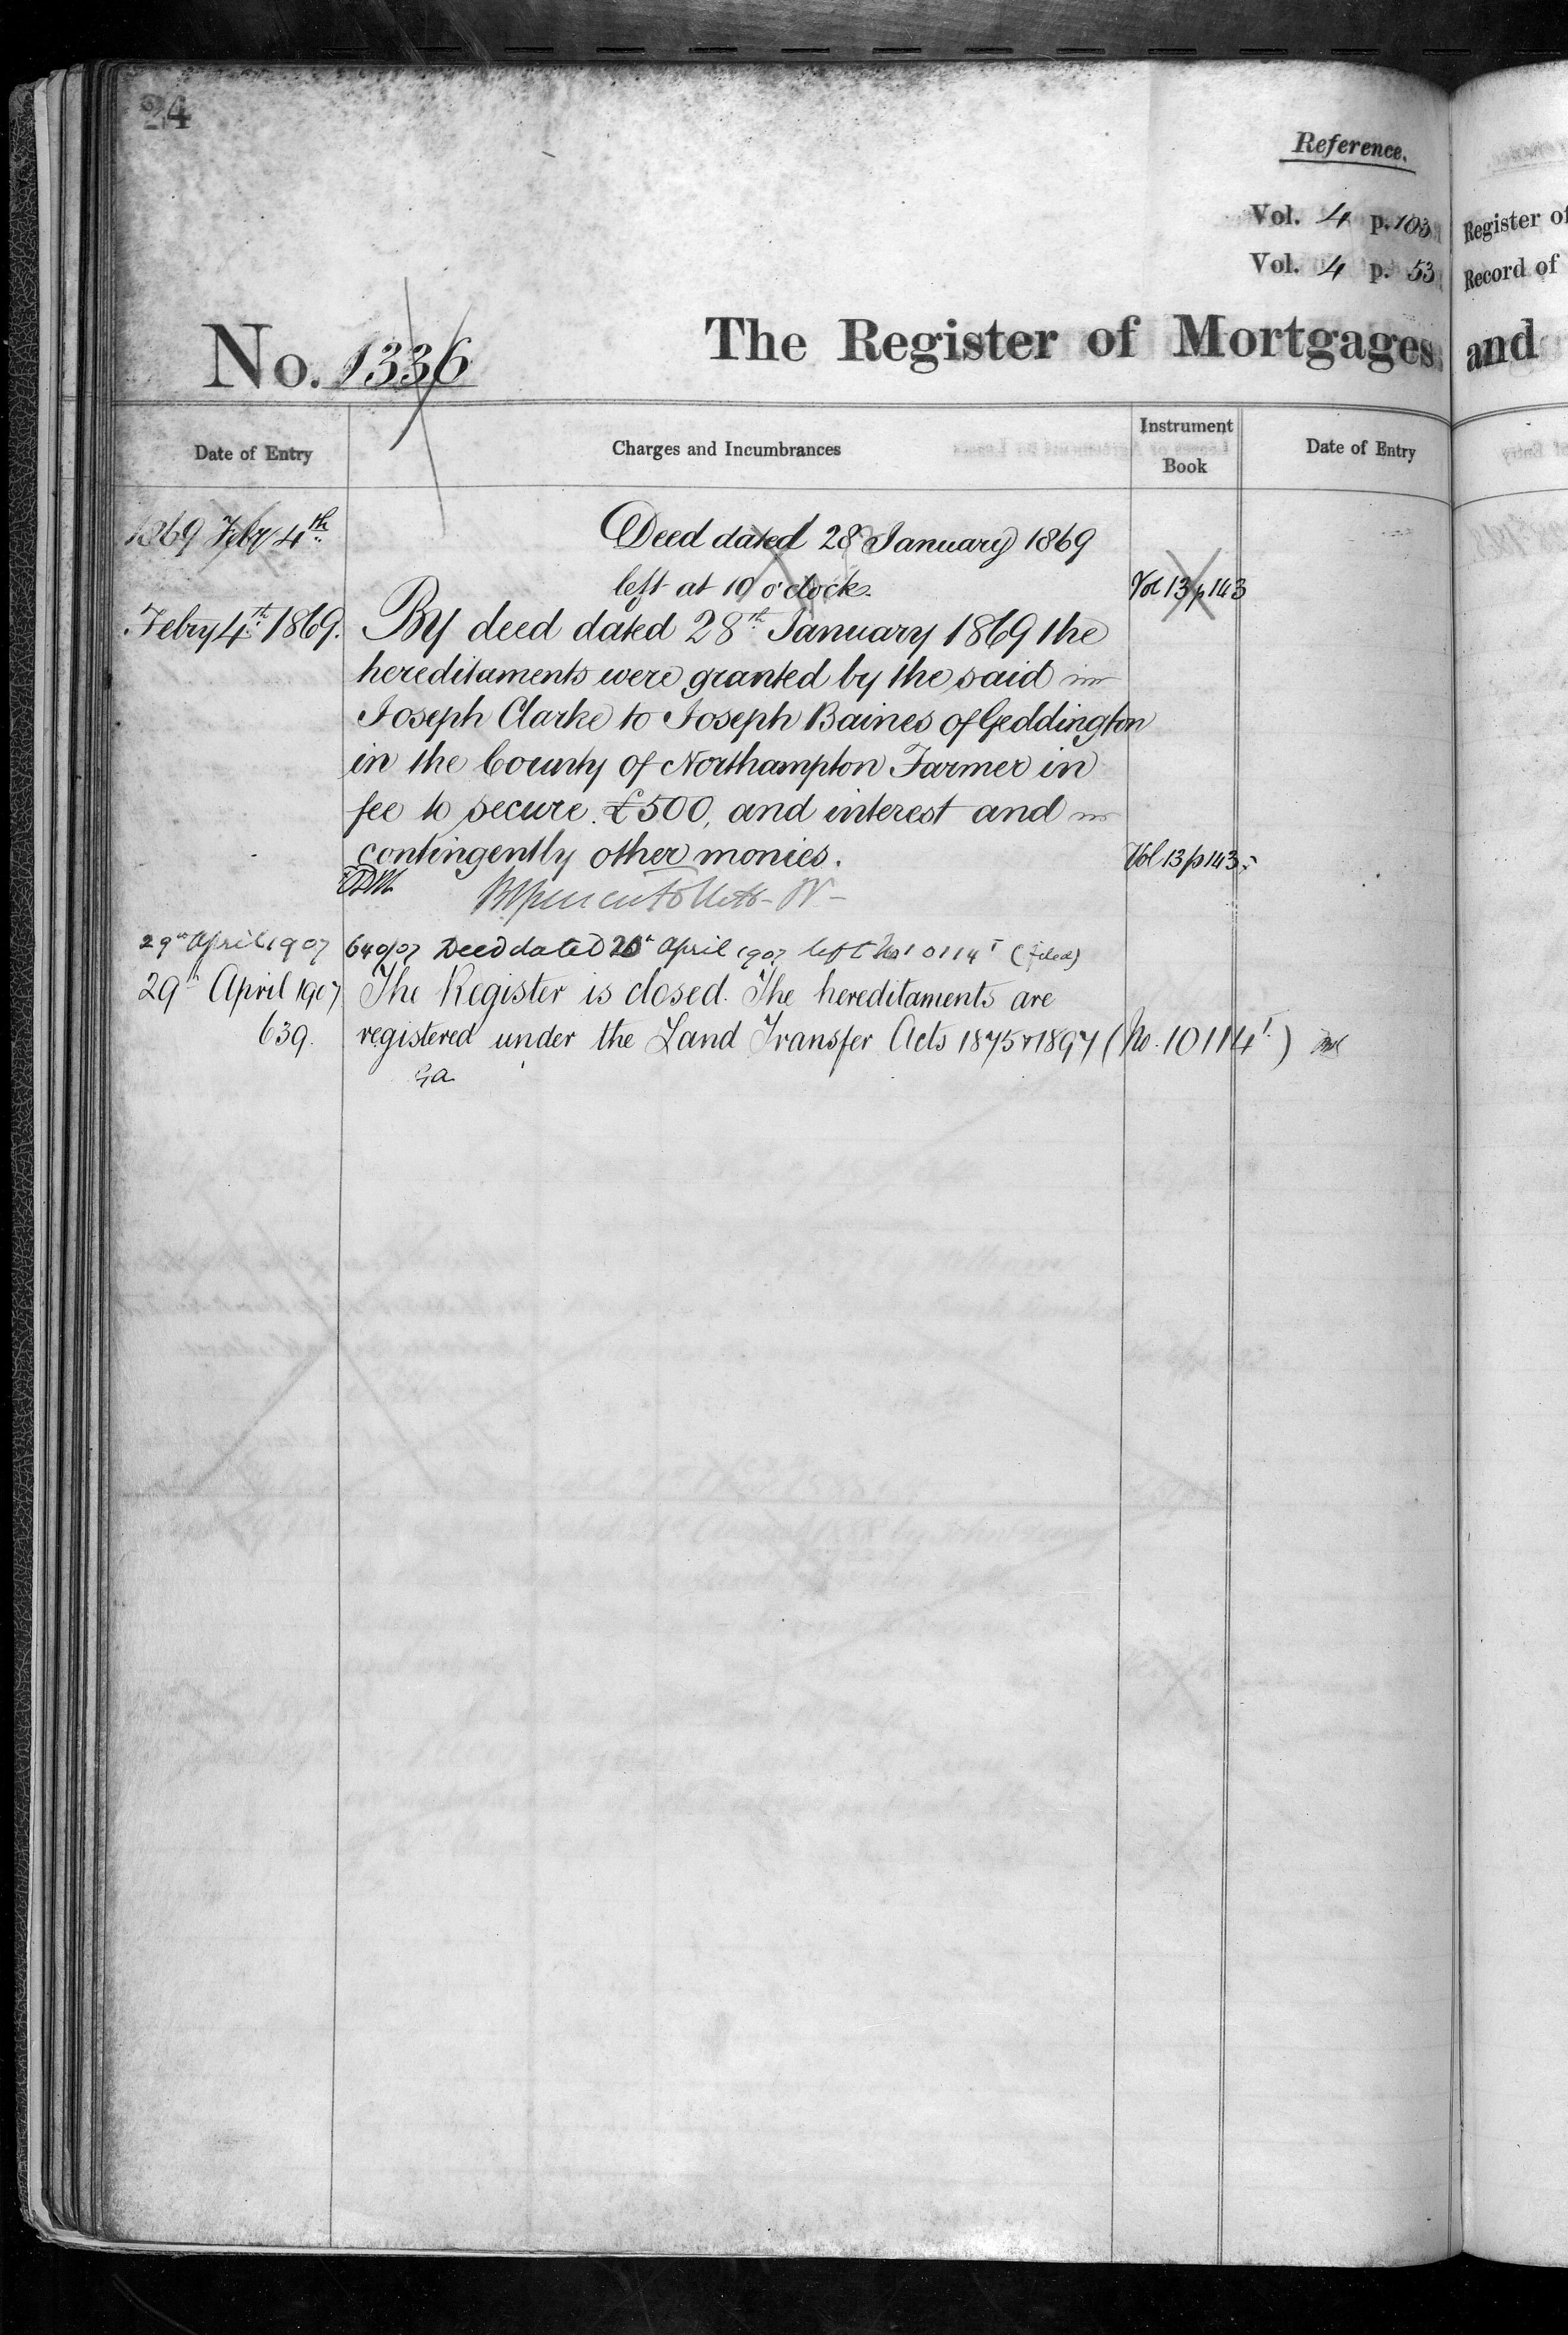 24
Reference.
Vol. 4 p. 103 Register of
Vol. 4 p. 53 Record of
No. 1336 The Register of Mortgages and
Date of Entry Charges and Incumbrances Instrument Book Date of Entry
1869 Feby 4th Deed dated 28 January 1869
left at 10 o'clock. Vol 13 p 143
Febry 4th 1869. By deed dated 28th January 1869 the
hereditaments were granted by the said
Joseph Clarke to Joseph Baines of Geddington
in the County of Northampton Farmer in
fee to secure £500, and interest and
contingently other monies. Vol 13 p 143
29th April 1907 640/07 Deed dated April 1907 left No 10114 T (filed)
29th April 1907 The Register is closed. The hereditaments are
639. registered under the Land Transfer Acts 1875 & 1897 (No. 10114 T.)
GA